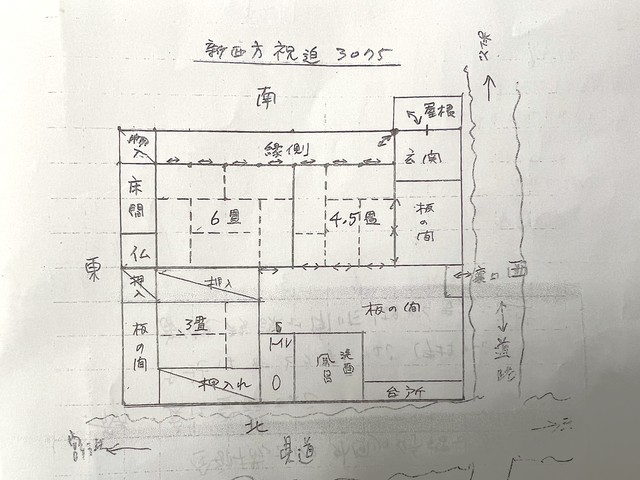 新西方祝迫 3075
南
屋根
物入
縁側
玄関
床間
6畳
4.5畳
板の間
仏
東
押入
押入
裏口
西
板の間
板の間
3畳
トイレ
風呂
洗面
道路
押入れ
台所
北
県道